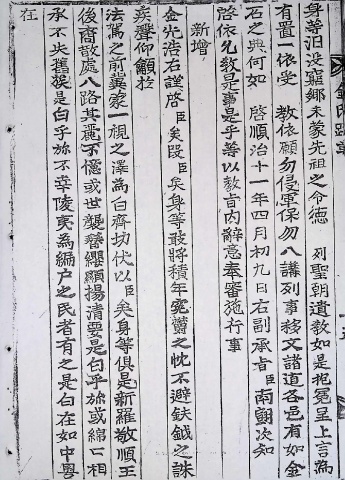 身等汨没窮鄕未蒙先祖之令德 列聖朝遺敎如是抱寃呈上言爲
有置一依受 敎依願勿侵軍保勿入講列事移文諸道各邑有如金
石之典何如 啓順治十一年四月初九日右副承旨臣南翧次知
啓依允敎是事是乎等以敎旨内辭意奉審施行事
新增
金允浩右謹啓臣矣段臣矣身等敢將積年寃欝之忱不避鈇鉞之誅
疾聲仰籲於
法駕之前冀蒙一視之澤爲白齊切伏以臣矣身等俱是新羅敬順王
後裔散處八路其麗不億或世襲簪纓顯揚淸要是白乎旀或綿綿相
承不失舊族是白乎旀不幸陵夷爲編户之民者有之是白在如中粤
在